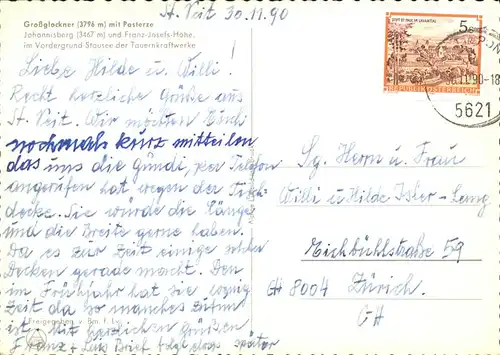 St. Veit 30.11.90
Großglockner (3796 m) mit Pasterze
Johannisberg (3467 m) und Franz-Josefs-Höhe,
im Vordergrund Stausee der Tauernkraftwerke
Liebe Hilde u. Willi!
Recht herzliche Grüße aus
St. Veit. Wir möchten Euch
nochmals kurz mitteilen
das uns die Gundi, per Telefon
angerufen hat wegen der Tisch-
decke. Sie würde die Länge
und die Breite gerne haben.
Da es zur Zeit einige solche
Decken gerade macht. Den
im Frühjahr hat sie wenig
Zeit da so manches zutun
ist. Mit herzlichen Grüßen
Franz + Brief folgt etwas später
Freigegeben v. Bm. f. Lv.
5 S
STIFT ST. PAUL IM LAVANTTAL
REPUBLIK ÖSTERREICH
11.90-18
5621
Sg. Herrn u. Frau
Willi u Hilde Isler-Lang
Eichbühlstraße 59
CH 8004 Zürich.
CH